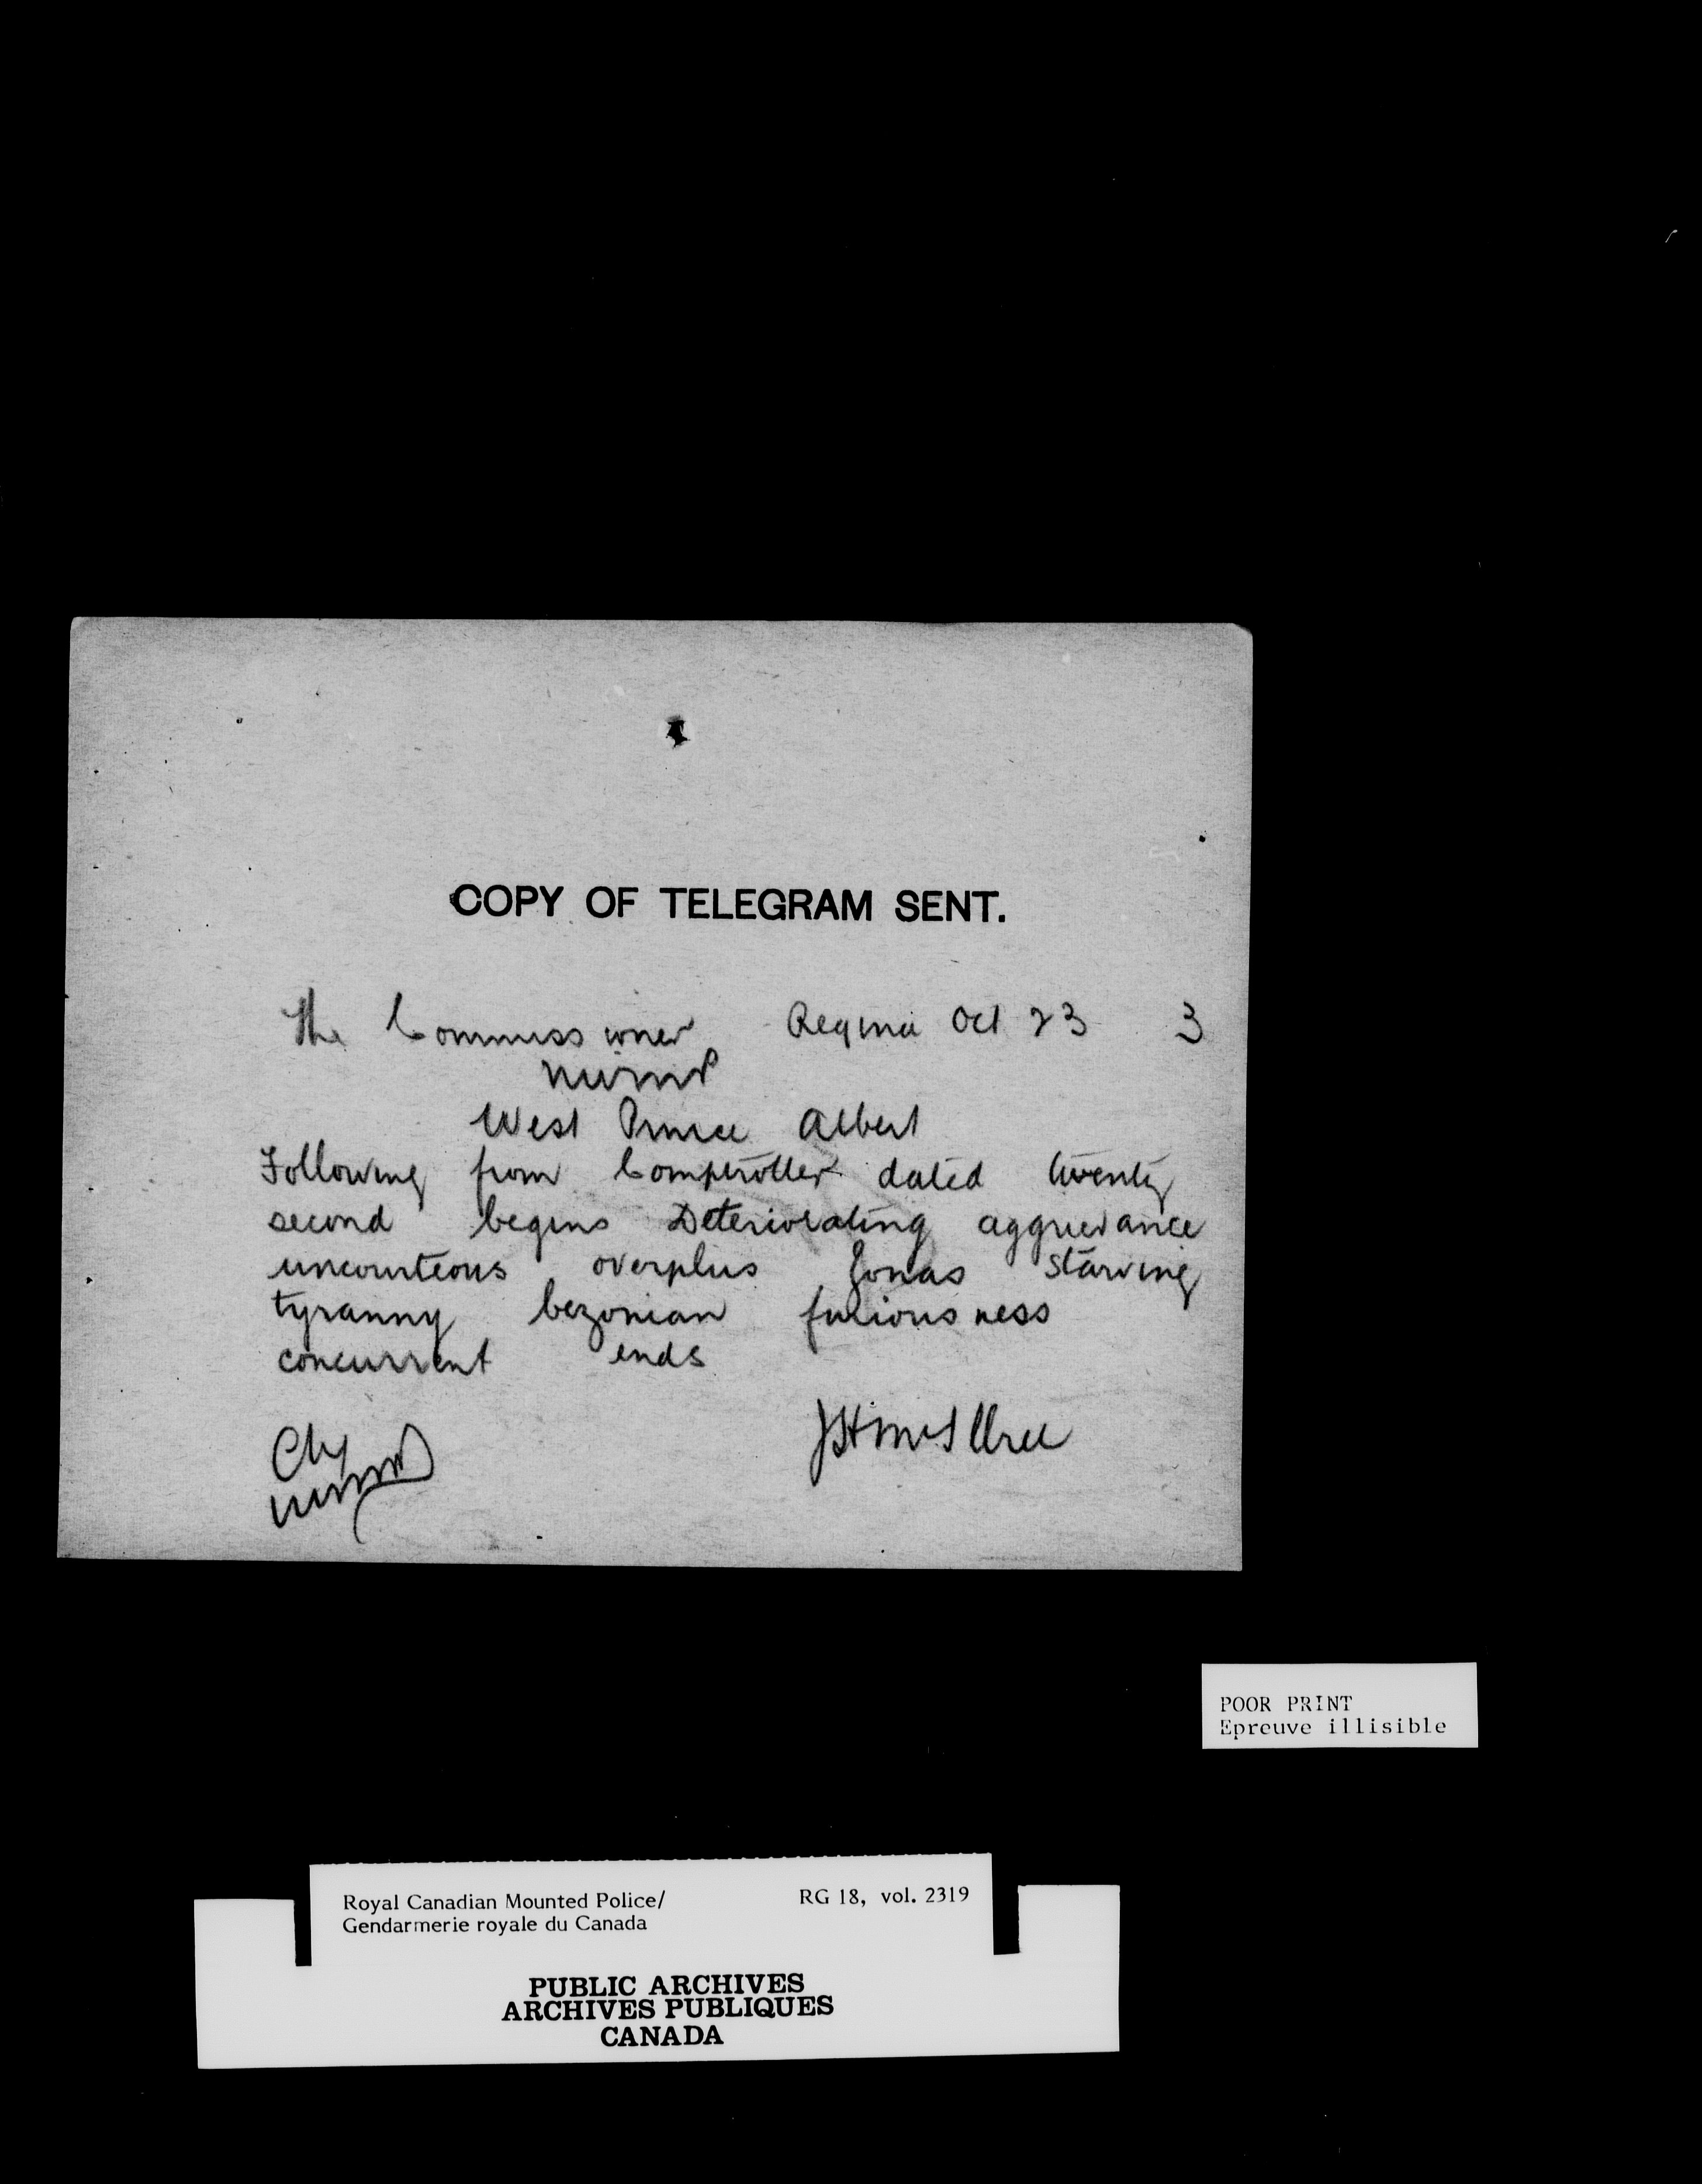 COPY OF TELEGRAM SENT.
The Commissioner Regina Oct 23 3
NWMP
West Prince Albert
Following from Comptroller dated twenty
second begins Deteriorating aggrievance
uncourteous overplus Jonas starving
tyranny bezonian furiousness
concurrent ends
Chg
NWMP
JH McIllree
POOR PRINT
Epreuve illisible
Royal Canadian Mounted Police/ RG 18, vol. 2319
Gendarmerie royale du Canada
PUBLIC ARCHIVES
ARCHIVES PUBLIQUES
CANADA